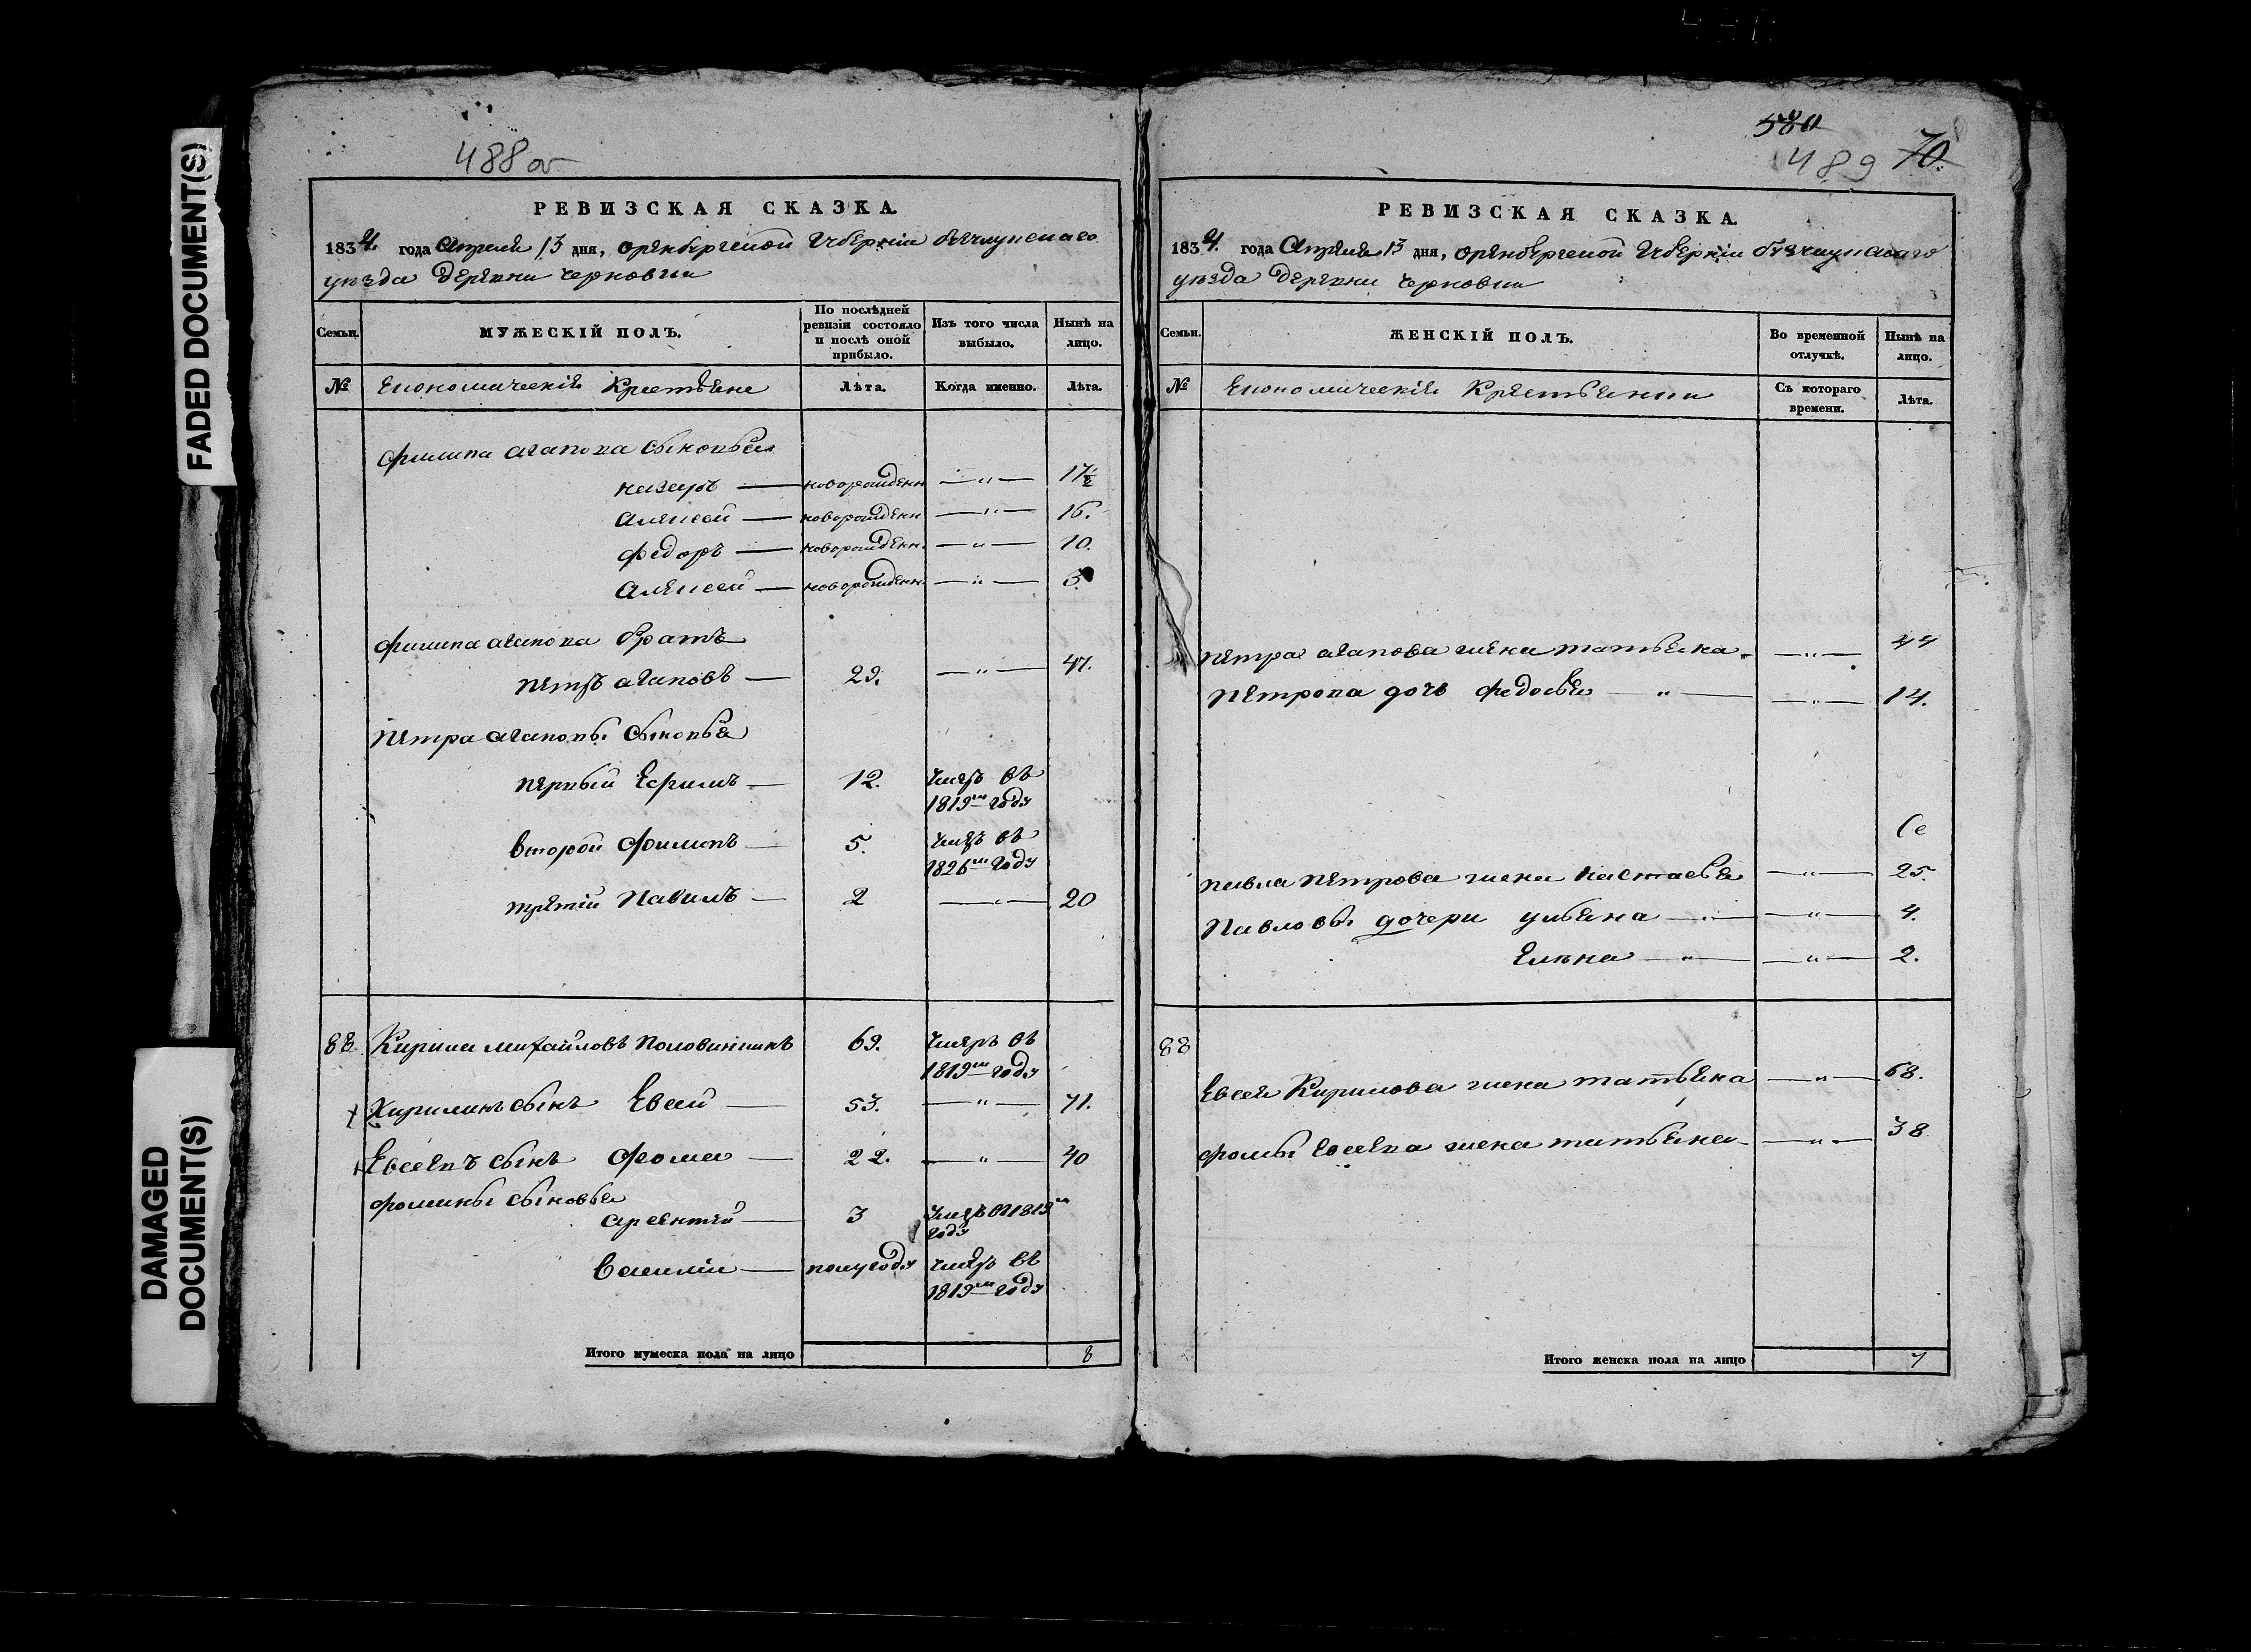 FADED DOCUMENT(S)
DAMAGED
DOCUMENT(S)
488 об
РЕВИЗСКАЯ СКАЗКА.
1834 года Апреля 13 дня, Оренбургской Губернiи
уѣзда деревни
Семьи.
МУЖЕСКIЙ ПОЛЪ.
По послѣдней ревизiи состояло и послѣ оной прибыло.
Изъ того числа выбыло.
Нынѣ на лицо.
№ Економическiя Крестьяне Лѣта. Когда именно. Лѣта.
Филипа Агапова Сыновья
назаръ — новорожденн — " — 17 1/2
Алексей — новорожденн — " — 16.
Федоръ — новорожденн. — " — 10.
Алексей — новорожденн. — " —
Филипа Агапова братъ
петръ Агаповъ — 29. — " — 47.
Петра Агаповы Сыновья
первый Ефимъ — 12. умеръ въ
1819м году
второй Филипъ — 5. умеръ въ
1826м году
третiй Павилъ — 2 — " — 20
88 Кирила михайловъ Половинкинъ 69. умеръ въ
1819м году
Кирилинъ сынъ Евсей — 53. — " — 71.
Евсеевъ сынъ Фома — 22. — " — 40
Фомины сыновья
Арсентей — 3 умеръ въ 1819м
году
Василiи — полугоду умеръ въ
1819м году
Итого мужеска пола на лицо 8
580
489 70.
РЕВИЗСКАЯ СКАЗКА.
1834. года Апреля 13 дня, Оренбергской Губернiи
уѣзда деревни
Семьи.
ЖЕНСКIЙ ПОЛЪ.
Во временной отлучкѣ.
Нынѣ на лицо.
№ Економическiя Крестьянки Съ котораго времени. Лѣта.
Петра Агапова жена татьяна — " — 44
Петрова дочь федосья — " — — " — 14.
павла петрова жена настасья — " — 25.
Павловы дочери ульяна — " — — " — 4.
Елена — " — — " — 2.
88
Евсея Кирилова жена татьяна — " — 68.
Фомы Евсеева жена татьяна — " — 38
Итого женска пола на лицо 7